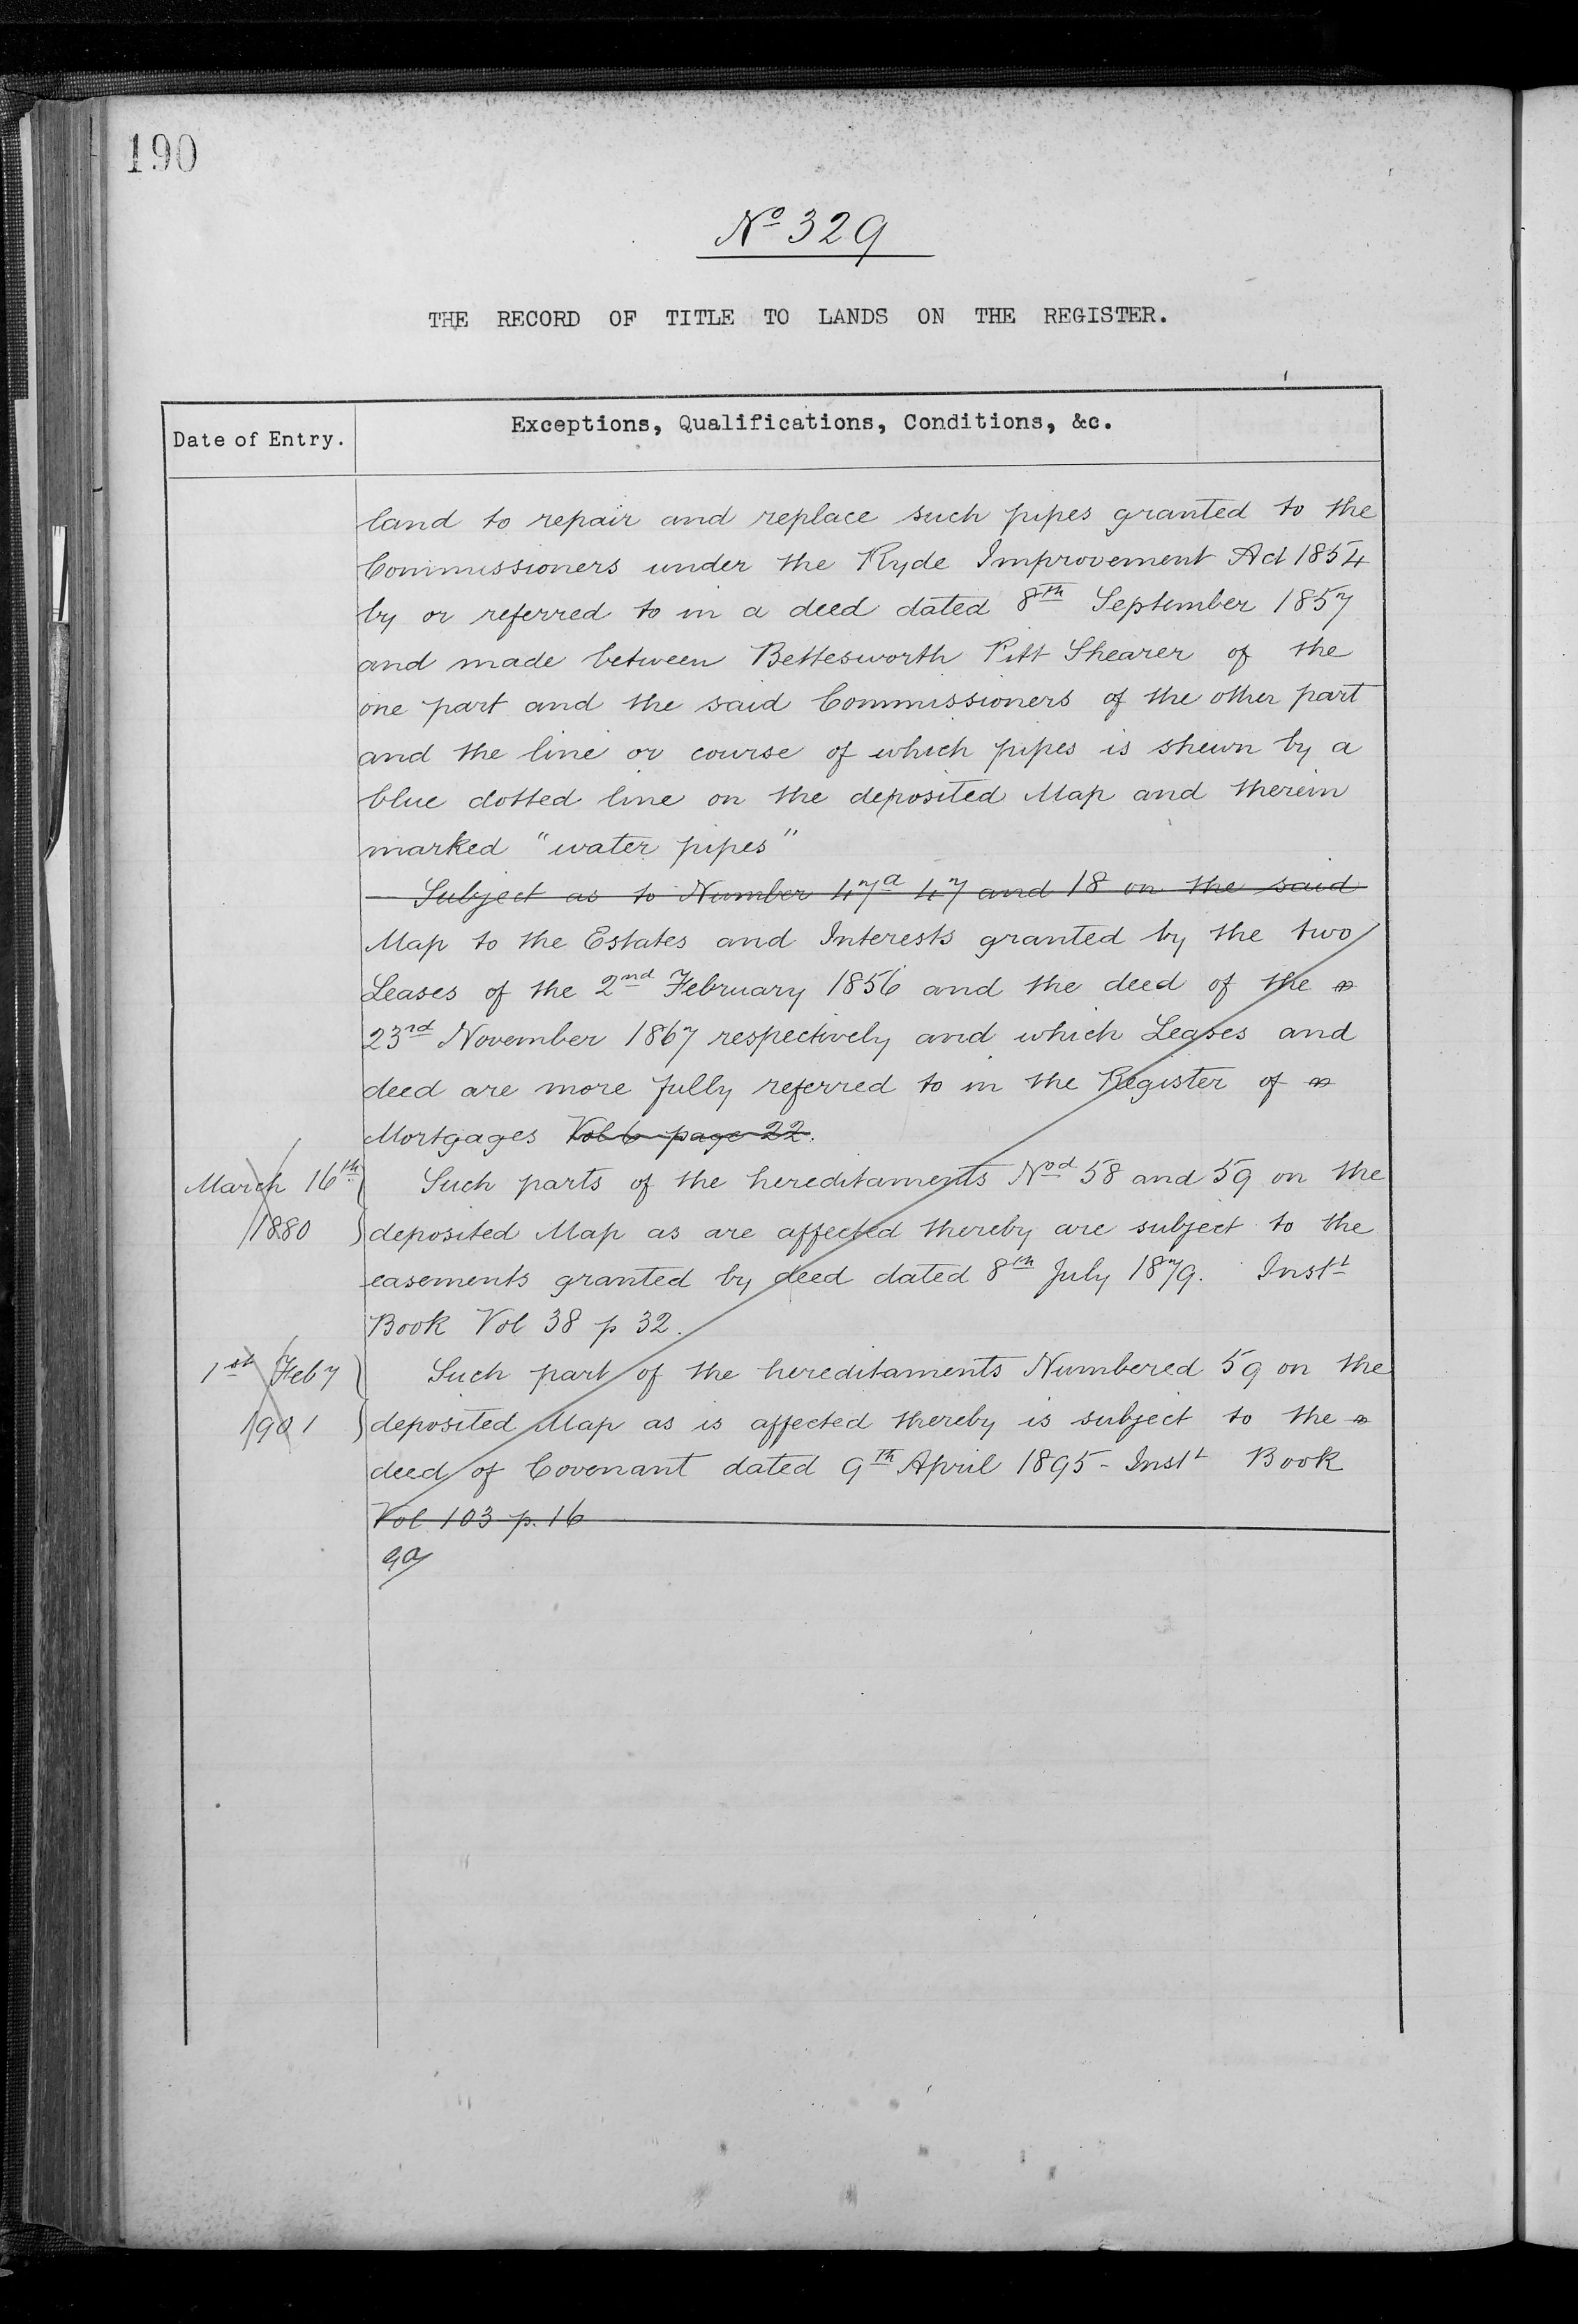 190
No 329
THE RECORD OF TITLE TO LANDS ON THE REGISTER.
Date of Entry. Exceptions, Qualifications, Conditions, &c.
land to repair and replace such pipes granted to the
Commissioners under the Ryde Improvement Act 1854
by or referred to in a deed dated 8th September 1857
and made between Bettesworth Pitt Shearer of the
one part and the said Commissioners of the other part
and the line or course of which pipes is shewn by a
blue dotted line on the deposited Map and therein
marked "water pipes"
Subject as to Number 47a 47 and 18 on the said
Map to the Estates and Interests granted by the two
Leases of the 2nd February 1856 and the deed of the
23rd November 1867 respectively and which Leases and
deed are more fully referred to in the Register of
Mortgages Vol 6 page 22.
March 16th Such parts of the hereditaments Nod 58 and 59 on the
1880 deposited Map as are affected thereby are subject to the
easements granted by deed dated 8th July 1879. Instt
Book Vol 38 p 32.
1st Feby Such part of the hereditaments Numbered 59 on the
1901 deposited Map as is affected thereby is subject to the
deed of Covenant dated 9th April 1895 - Instt Book
Vol 103 p. 16